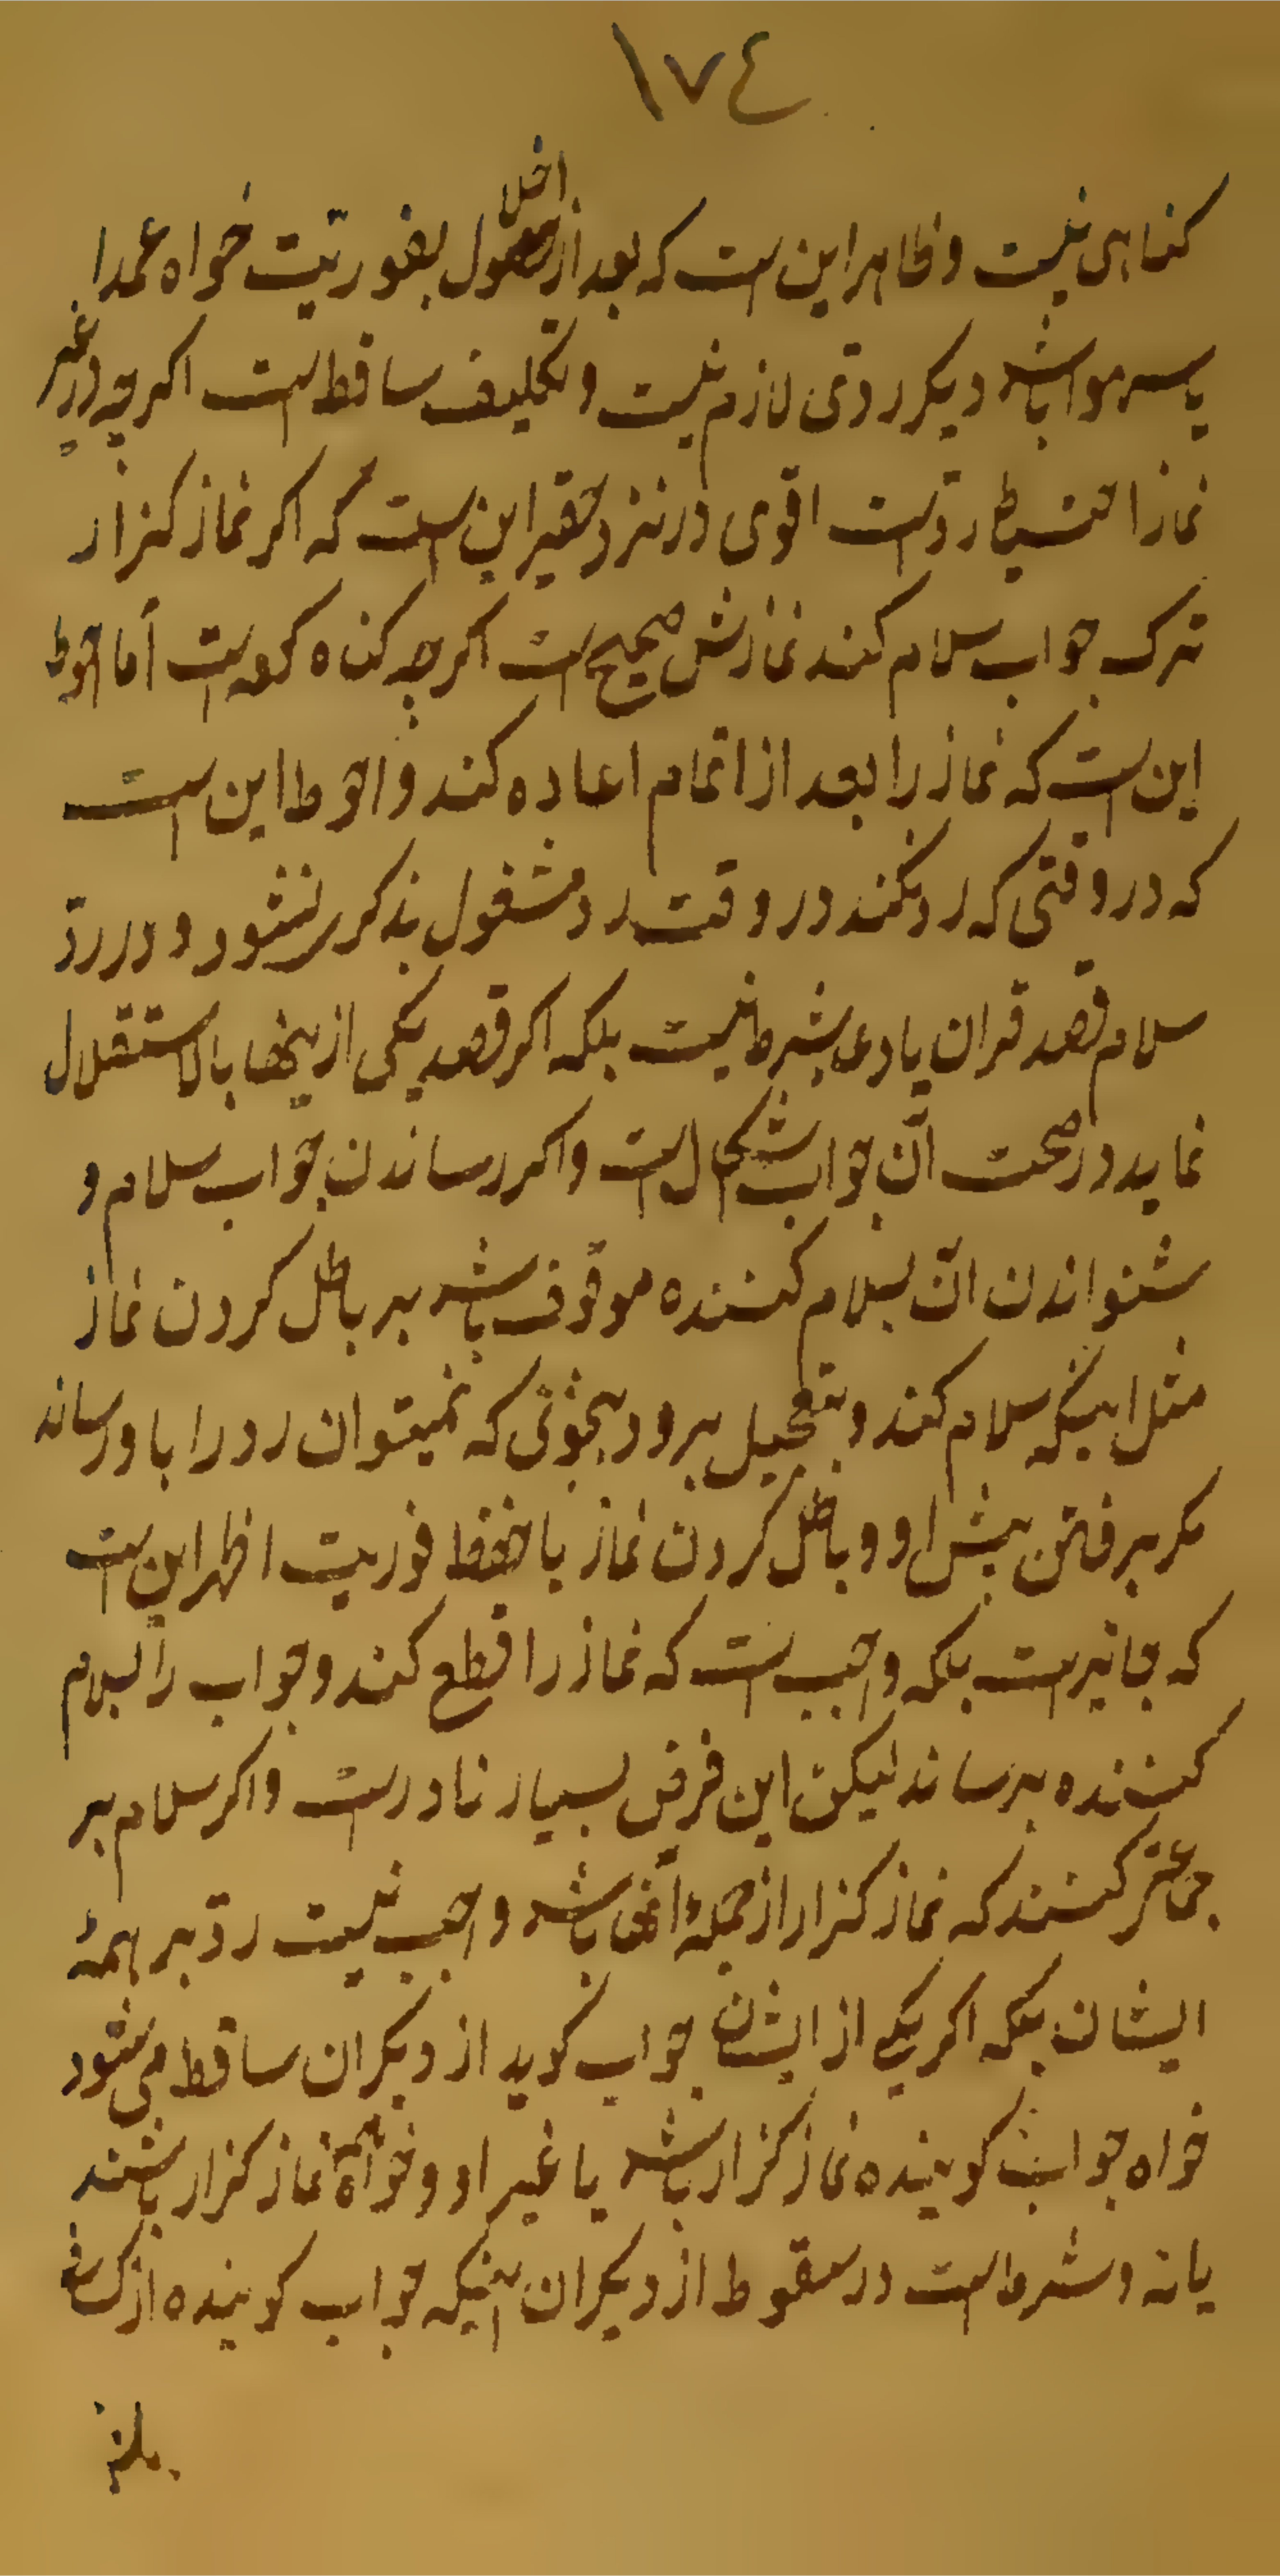 ١٧٤
اخلال
کناهی نیست و ظاهر این است که بعد از بفوریت خواه عمدا
یا سهوا باشد دیکر ردی لازم نیست و تکلیف ساقط است اکرچه در غیر
نماز احتیاط رد است اقوی در نزد حقیر این است که اکر نماز کزار
ترک جواب سلام کند نمازش صحیح است اکرچه کناه کرده است امّا احوط
این است که نماز را بعد از اتمام اعاده کند و احوط این است
که در وقتی که رد نکند در وقت رد مشغول بذکر نشود و در ردّ
سلام قصد قران یا دعا شرط نیست بلکه اکر قصد یکی از اینها بالاستقلال
نماید در صحت آن جواب اشکال است و اکر رساندن جواب سلام و
شنواندن ان بسلام کننده موقوف باشد بر باطل کردن نماز
مثل اینکه سلام کند و بتعجیل برود بنحوی که نمیتوان رد را باو رساند
مکر برفتن پیش او و باطل کردن نماز با فوریت اظهر این است
که جایز است بلکه واجب است که نماز را قطع کند و جواب را بسلام
کننده برساند لیکن این فرض بسیار نادر است و اکر سلام بر
جماعتی کنند که نماز کزار از جملهٔ انها باشد واجب نیست ردّ بر همهٔ
ایشان بلکه اکر یکی از ایشان جواب کوید از دیکران ساقط می شود
خواه جواب کوینده نماز کزار باشد یا غیر او و خواه همه نماز کزار باشند
یا نه و شرط است در سقوط از دیکران اینکه جواب کوینده از کسانی